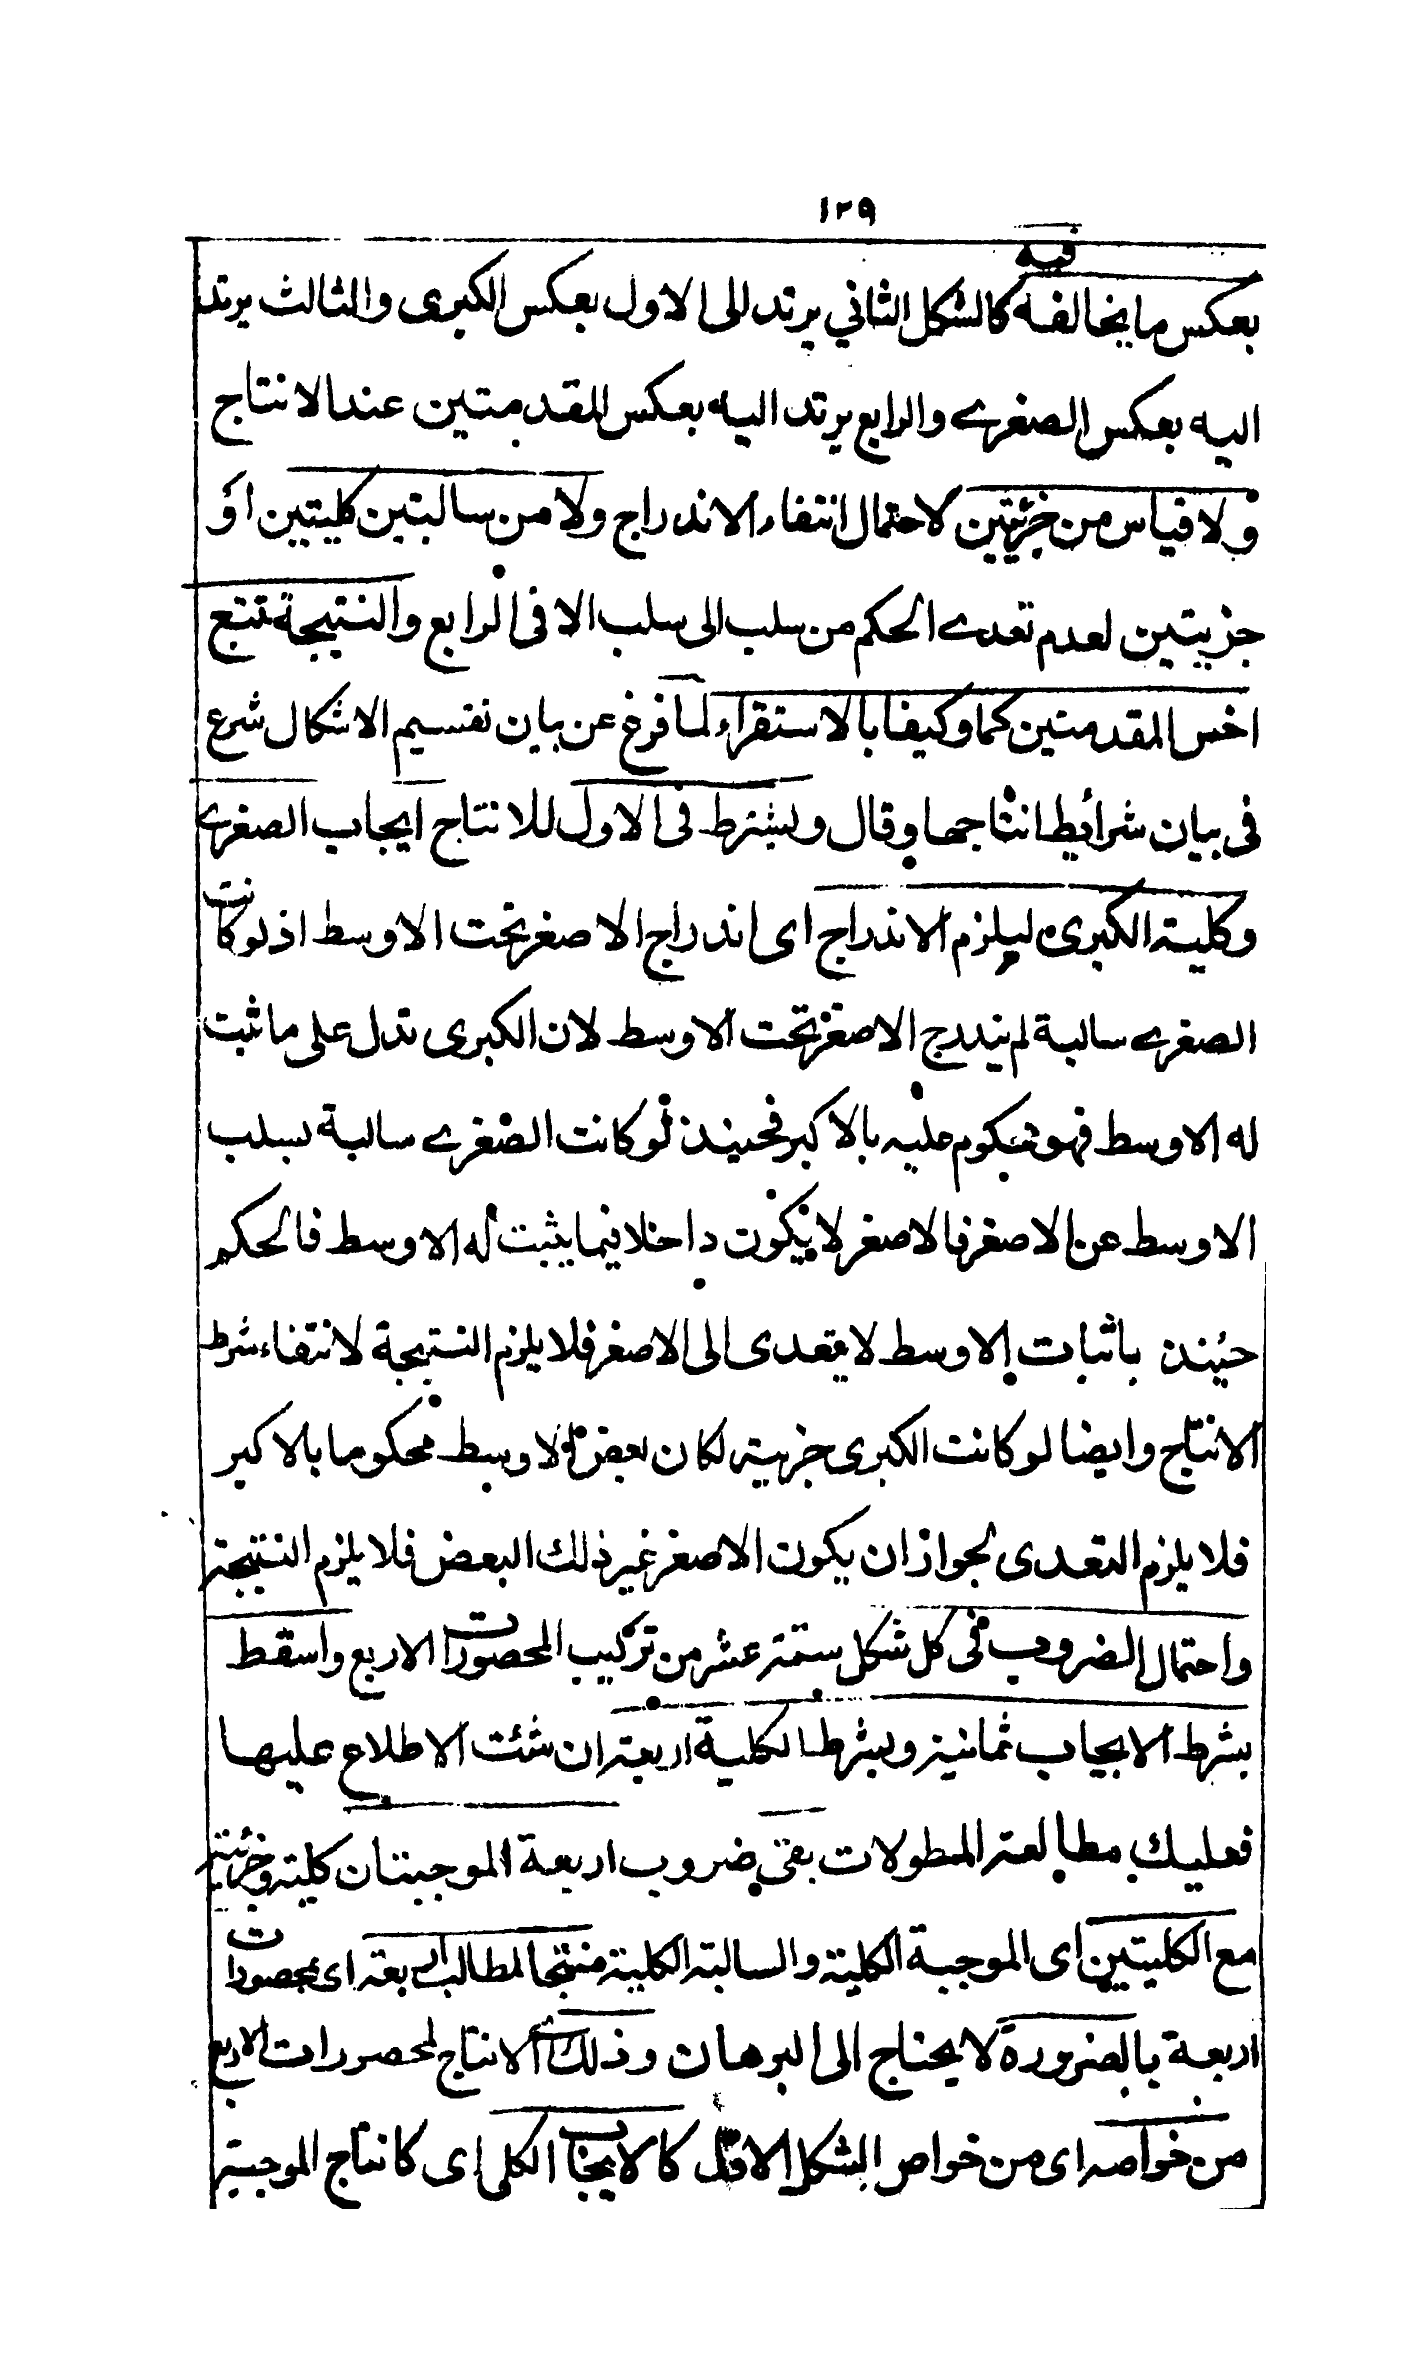 ١٢٩
فيه
بعكس ما يخالفه كالشكل الثاني يرتد الى الاول بعكس الكبرى والثالث يرتد
اليه بعكس الصغرے والرابع يرتد اليه بعكس المقدمتين عند الانتاج
ولا قياس من جزئيتين لاحتمال انتفاء الاندراج ولا من سالبتين كليتين او
جزييتين لعدم تعدے الحكم من سلب الى سلب الا فى الرابع والنتيجة تتبع
اخس المقدمتين كما وكيفا بالاستقراء لما فرغ عن بيان تقسيم الاشكال شرع
فى بيان شرائط انتاجها وقال ويشترط فى الاول للانتاج ايجاب الصغرے
وكلية الكبرى ليلزم الاندراج اى اندراج الاصغر تحت الاوسط اذ لو كانت
الصغرے سالبة لم يندرج الاصغر تحت الاوسط لان الكبرى تدل على ما ثبت
له الاوسط فهو محكوم عليه بالاكبر فحينئذ لو كانت الصغرے سالبة بسلب
الاوسط عن الاصغر فالاصغر لا يكون داخلا فيما يثبت له الاوسط فالحكم
حينئذ باثبات الاوسط لا يتعدى الى الاصغر فلا يلزم النتيجة لانتفاء شرط
الانتاج وايضا لو كانت الكبرى جزيية لكان بعض الاوسط محكوما بالاكبر
فلا يلزم التعدى لجواز ان يكون الاصغر غير ذلك البعض فلا يلزم النتيجة
واحتمال الضروب فى كل شكل ستة عشر من تركيب المحصورات الاربع واسقط
بشرط الايجاب ثمانية وبشرط الكلية اربعة ان شئت الاطلاع عليها
فعليك مطالعة المطولات بقى ضروب اربعة الموجبتان كلية وجزئية
مع الكليتين اى الموجبة الكلية والسالبة الكلية منتجا لمطالب اربعة اى محصورات
اربعة بالضرورة لا يحتاج الى البرهان وذلك اى الانتاج لمحصورات الاربع
من خواصه اى من خواص الشكل الاول كالايجاب الكلى اى كانتاج الموجبة